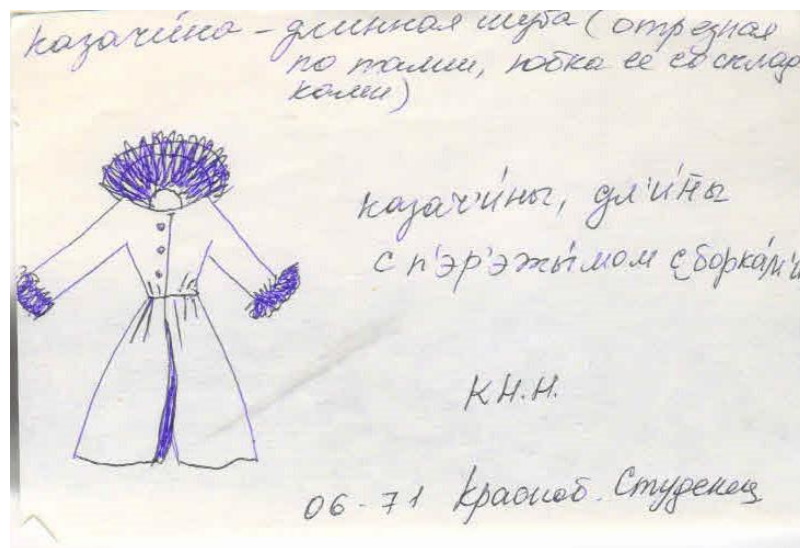 казачи́на – длинная шуба (отрезная
по талии, юбка ее со склад
ками)
казач'и́ны, дл'и́йы
с п'эр'эжы́мом с боркáм'и
КН.Н.
06-71 Красноб. Студенец